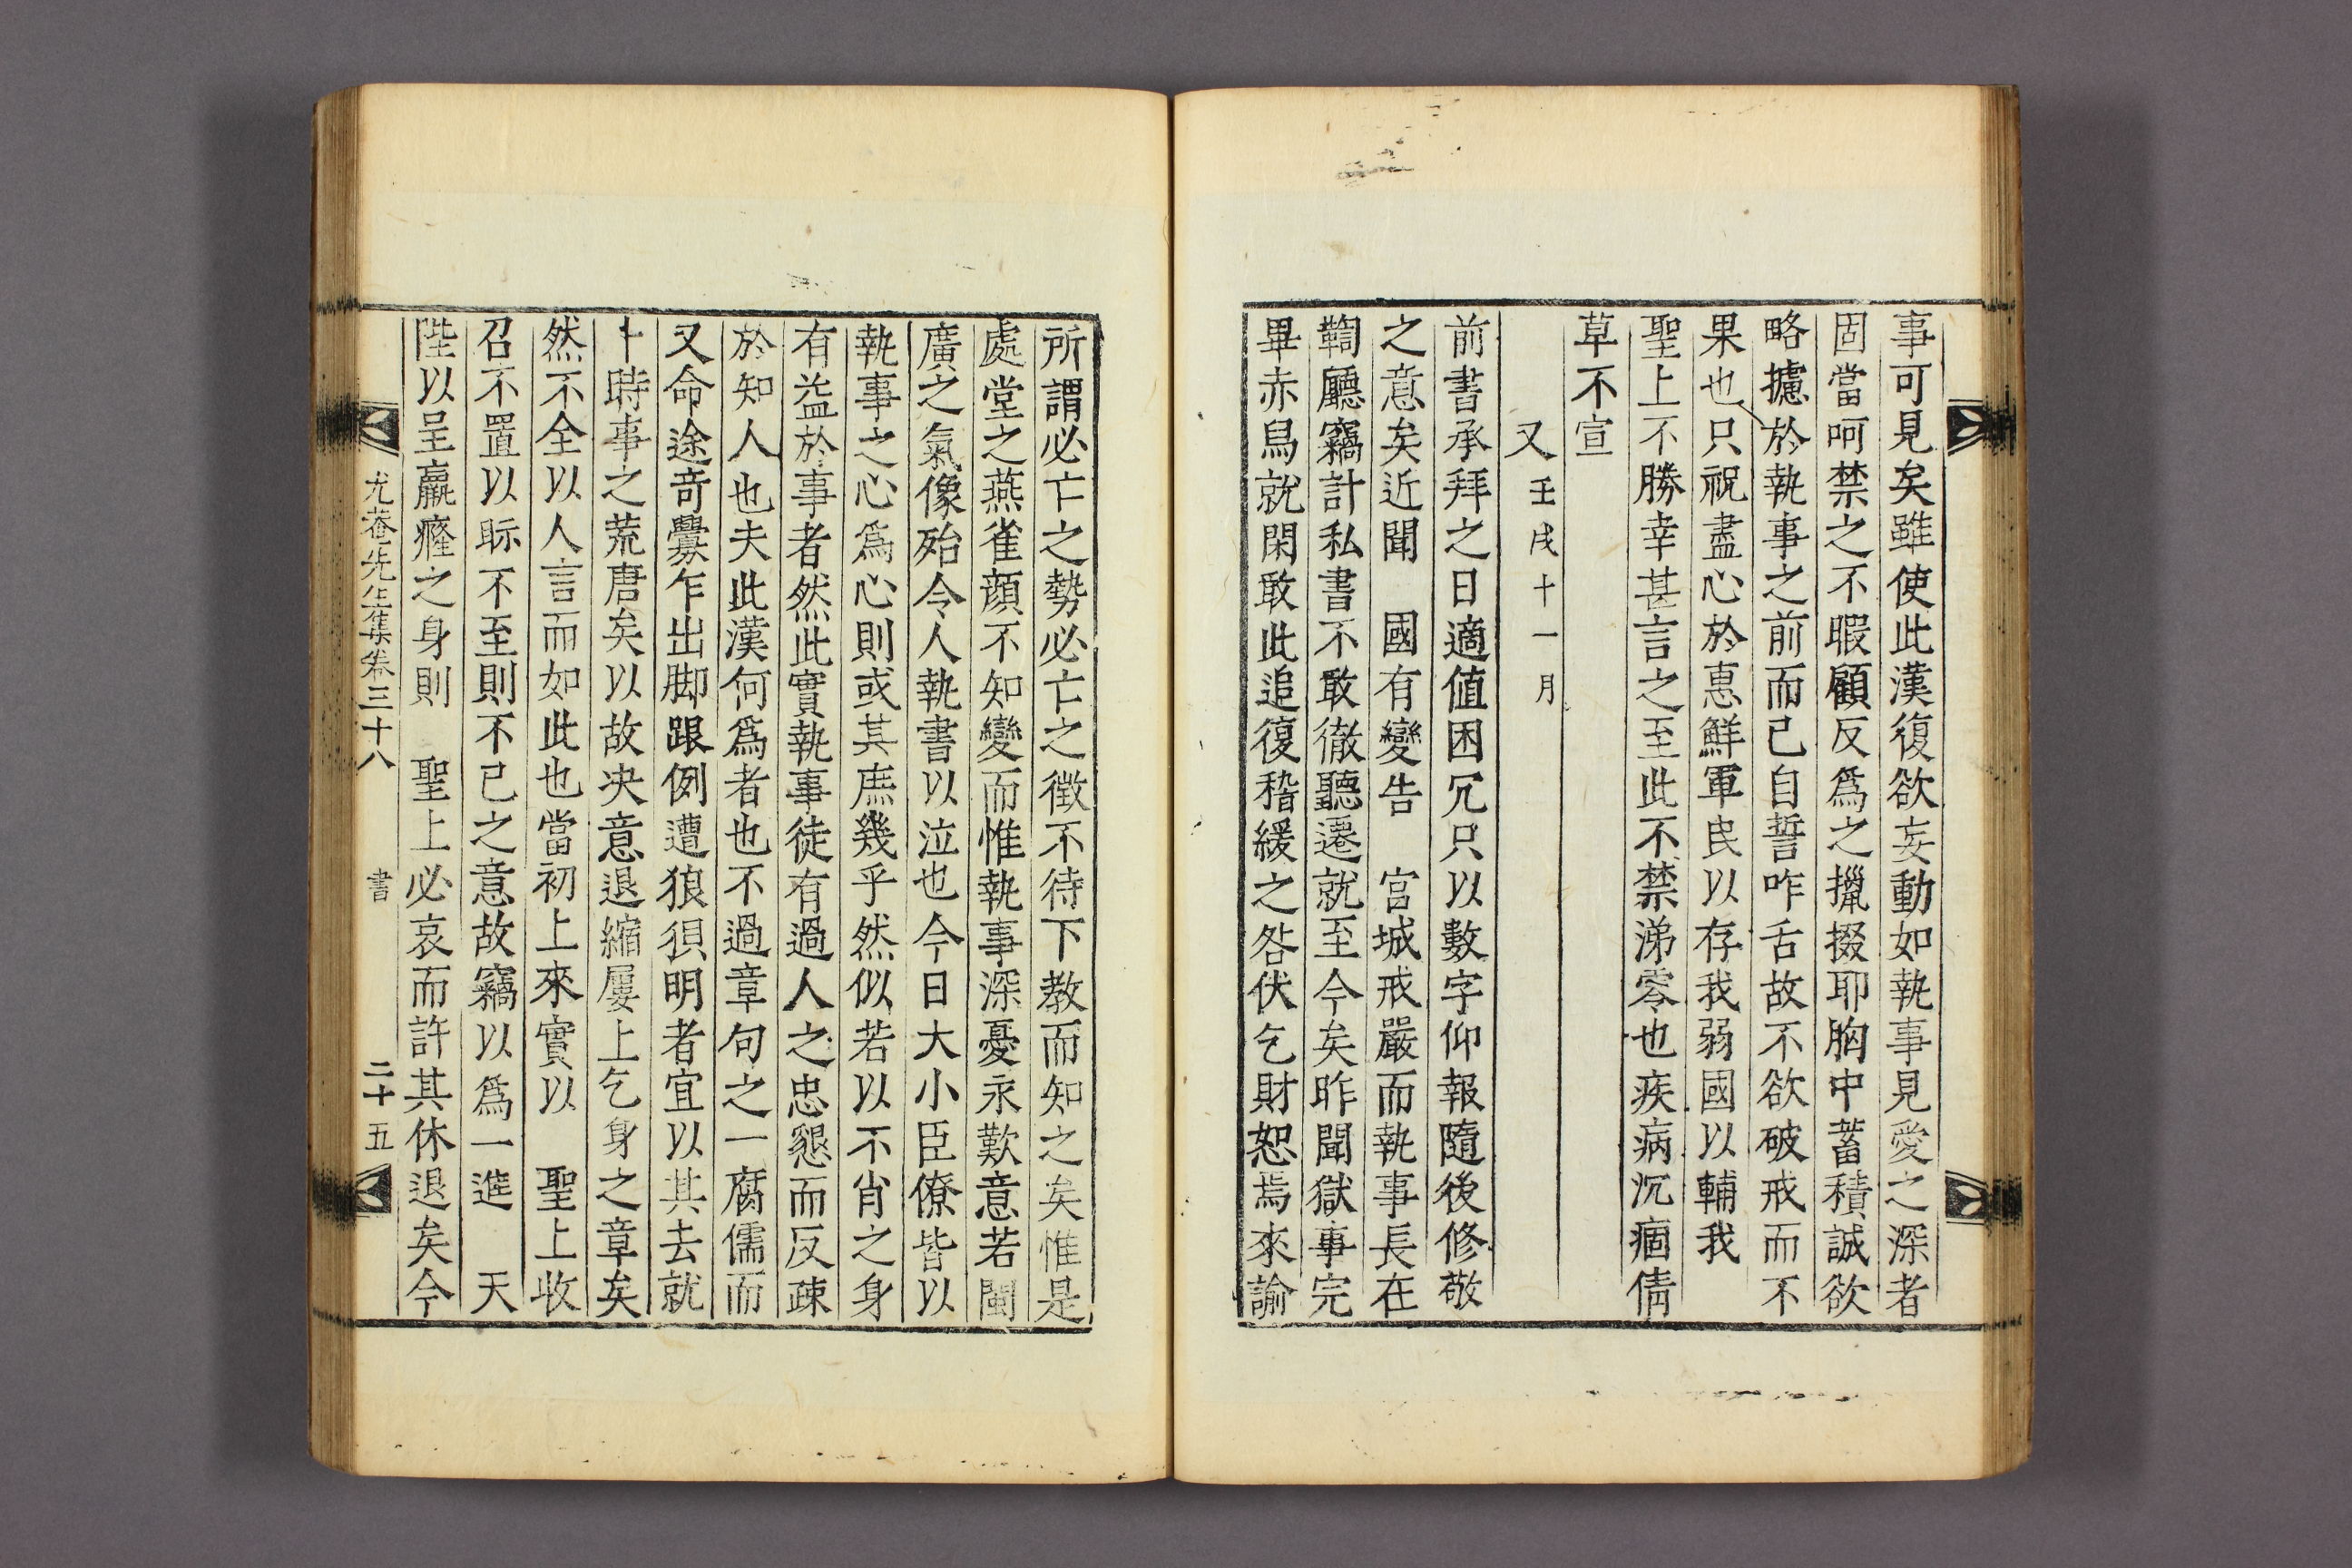 事可見矣雖使此漢復欲妄動如執事見愛之深者
固當呵禁之不暇顧反爲之擸掇耶胸中蓄積誠欲
略攄於執事之前而已自誓咋舌故不欲破戒而不
果也只祝盡心於惠鮮軍民以存我弱國以輔我
聖上不勝幸甚言之至此不禁涕零也疾病沉痼倩
草不宣
又 壬戌十一月
前書承拜之日適値困冗只以數字仰報隨後修敬
之意矣近聞 國有變告 宮城戒嚴而執事長在
鞫廳竊計私書不敢徹聽遷就至今矣昨聞獄事完
畢赤舄就閑敢此追復稽緩之咎伏乞財恕焉來諭
所謂必亡之勢必亡之徵不待下教而知之矣惟是
處堂之燕雀顔不知變而惟執事深憂永歎意若閩
廣之氣像殆令人執書以泣也今日大小臣僚皆以
執事之心爲心則或其庶幾乎然似若以不肖之身
有益於事者然此實執事徒有過人之忠懇而反疎
於知人也夫此漢何爲者也不過章句之一腐儒而
又命途奇釁乍出脚跟例遭狼狽明者宜以其去就
卜時事之荒唐矣以故决意退縮屢上乞身之章矣
然不全以人言而如此也當初上來實以 聖上收
召不置以眎不至則不已之意故竊以爲一進 天
陛以呈羸癃之身則 聖上必哀而許其休退矣今
尤菴先生集卷三十八 書 二十五